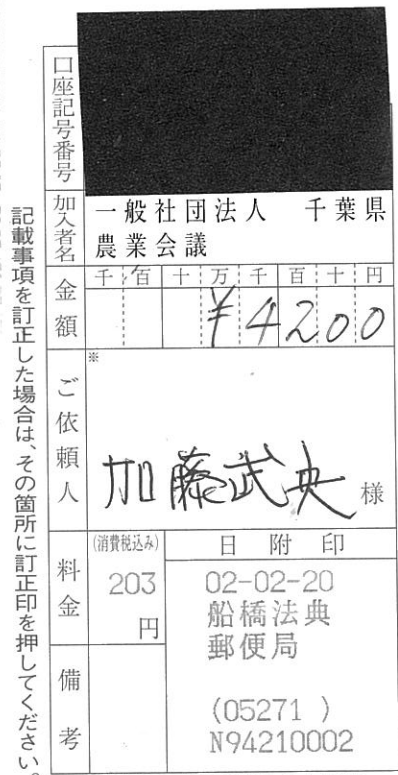 口座記号番号
加入者名
一般社団法人 千葉県
農業会議
金額
千百十万千百十円
¥4200
ご依頼人
※
加藤武央 様
料金
(消費税込み)
203
円
日附印
02-02-20
船橋法典
郵便局
(05271 )
N94210002
備考
記載事項を訂正した場合は、その箇所に訂正印を押してください。